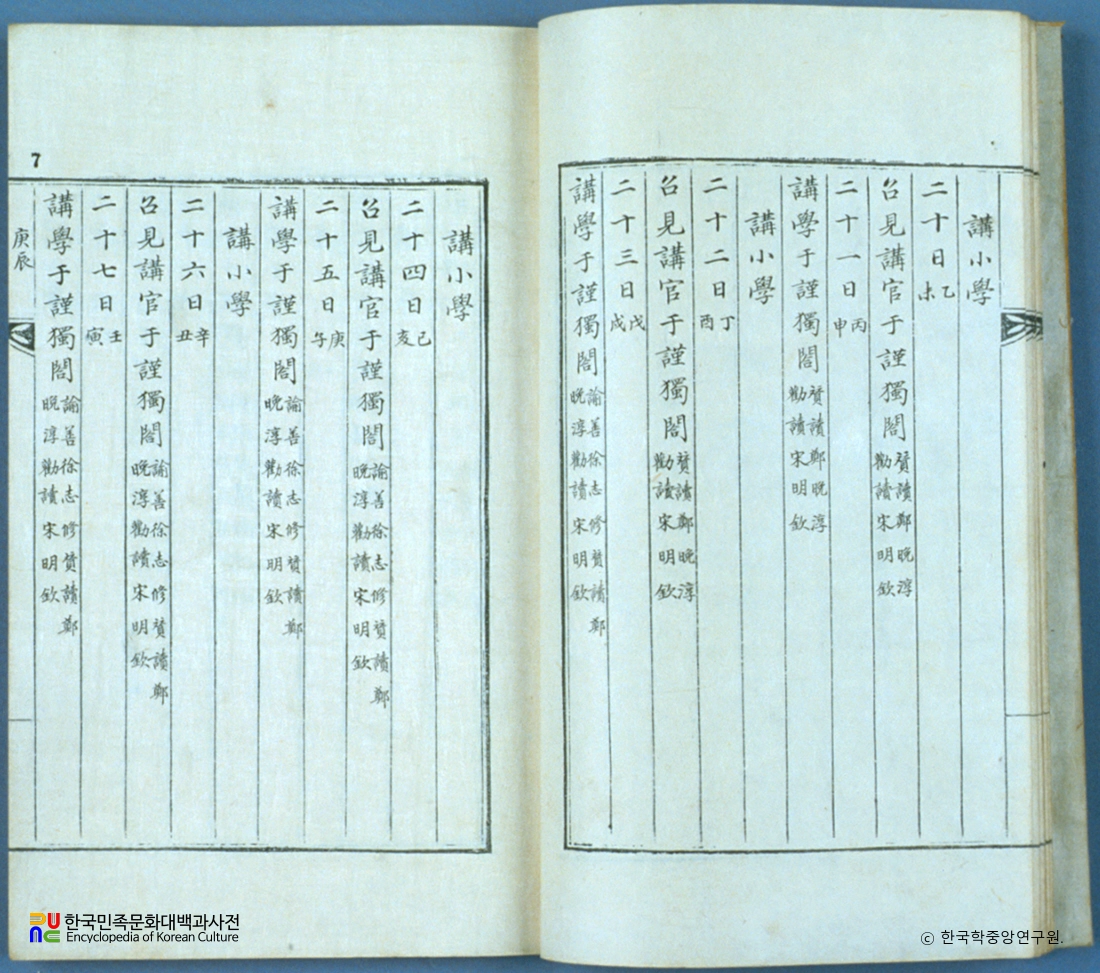 講小學
二十日乙未
召見講官于謹獨閤贊讀鄭晩淳勸讀宋明欽
二十一日丙申
講學于謹獨閤贊讀鄭晩淳勸讀宋明欽
講小學
二十二日丁酉
召見講官于謹獨閤贊讀鄭晩淳勸讀宋明欽
二十三日戊戌
講學于謹獨閤諭善徐志修贊讀鄭晩淳勸讀宋明欽
講小學
二十四日己亥
召見講官于謹獨閤諭善徐志修贊讀鄭晩淳勸讀宋明欽
二十五日庚午
講學于謹獨閤諭善徐志修贊讀鄭晩淳勸讀宋明欽
講小學
二十六日辛丑
召見講官于謹獨閤諭善徐志修贊讀鄭晩淳勸讀宋明欽
二十七日壬寅
講學于謹獨閤諭善徐志修贊讀鄭晩淳勸讀宋明欽
庚辰
7
한국민족문화대백과사전
Encyclopedia of Korean Culture
ⓒ 한국학중앙연구원.